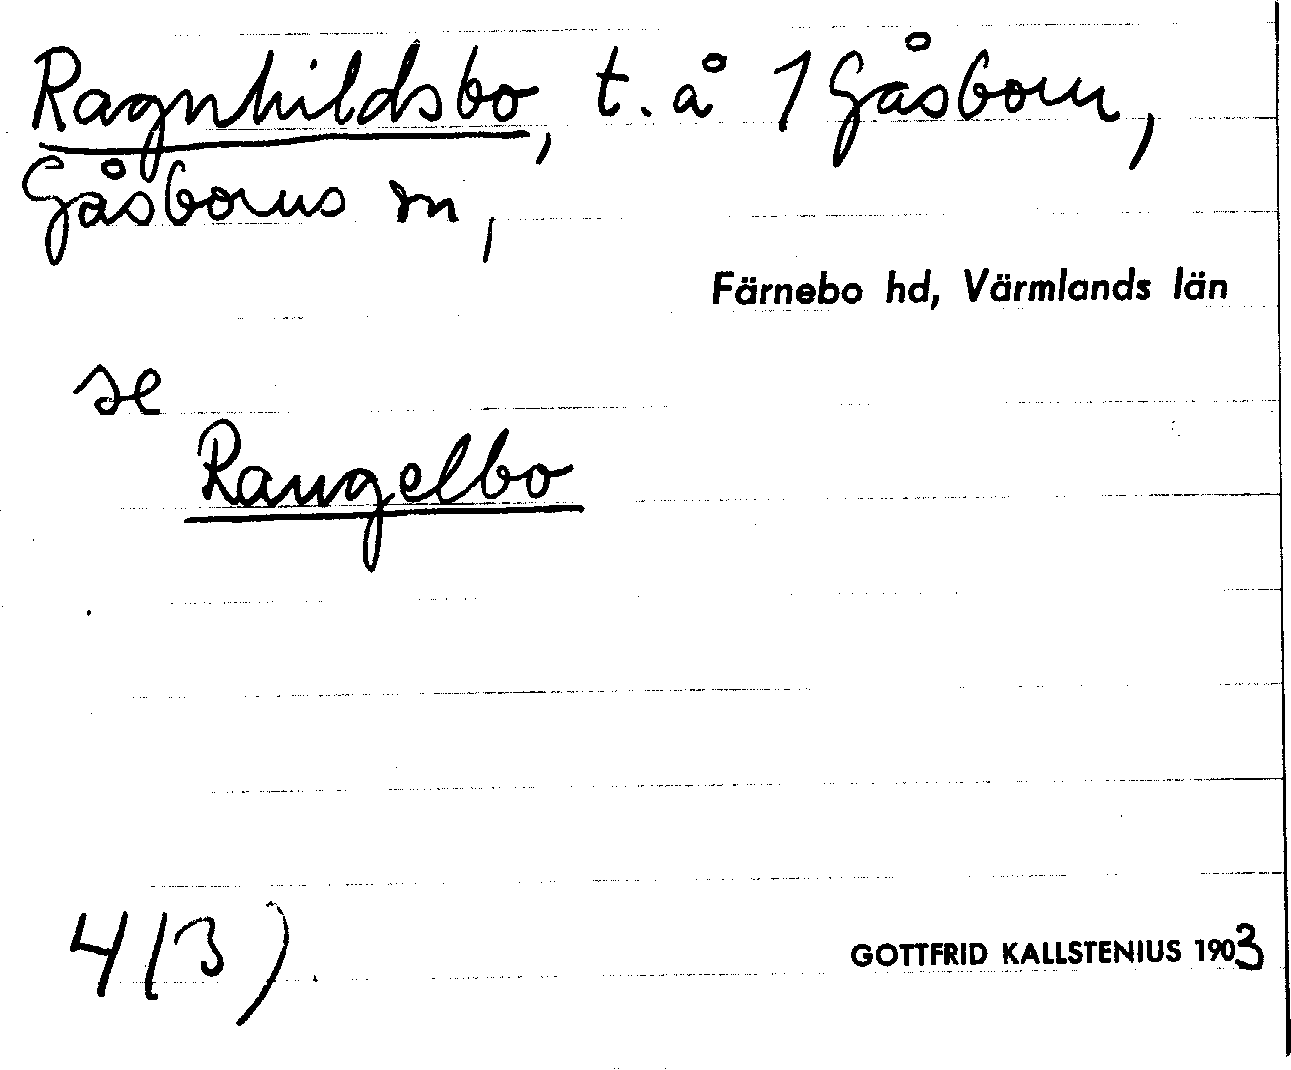 Ragnhildsbo, t. å 1 Gåsborn,
Gåsborns sn,
Färnebo hd, Värmlands län
se
Rangelbo
4(3).
GOTTFRID KALLSTENIUS 1903